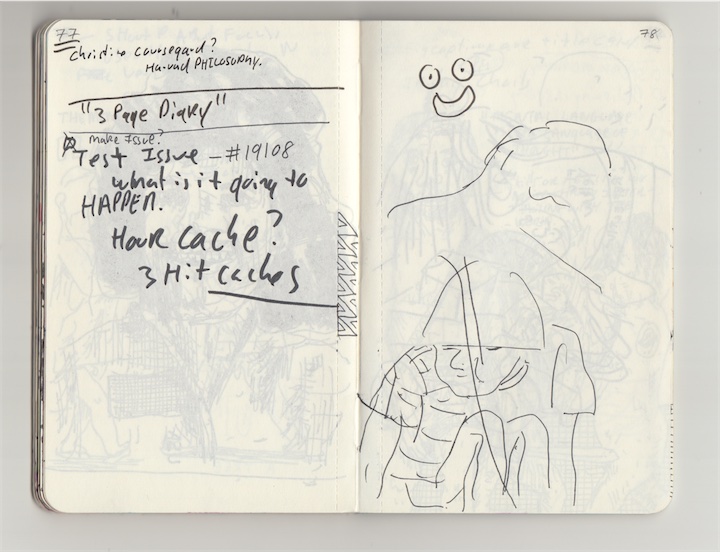 77
Harvard PHILOSOPHY.
"3 Page Diary"
Make Issue?
Test Issue - #19108
what is it going to
HAPPEN.
Hour cache?
3 Hit caches
78